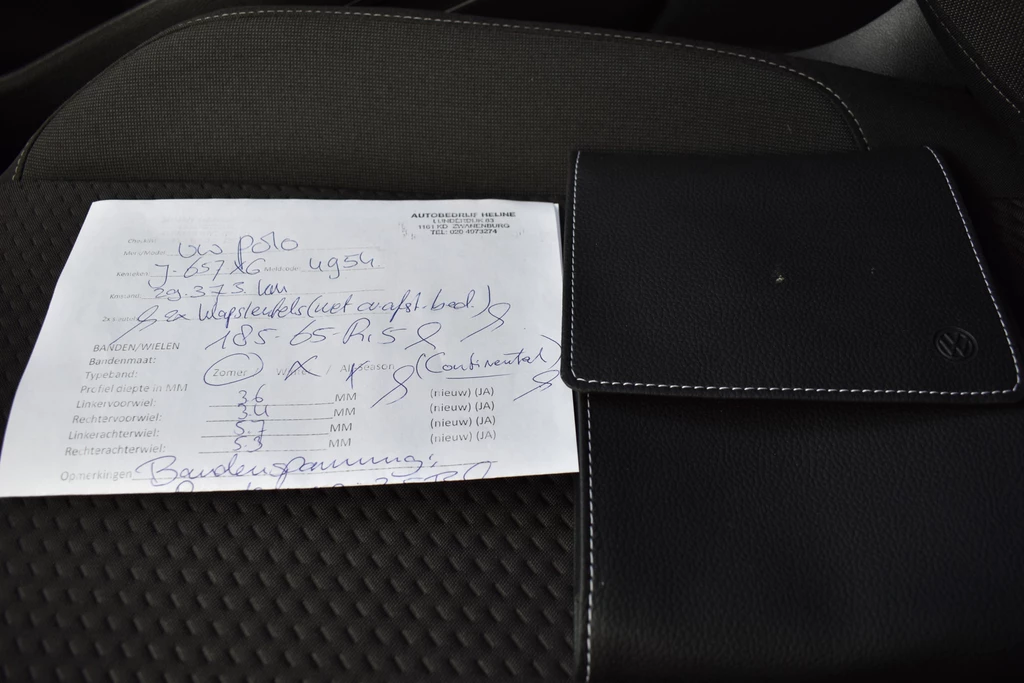 AUTOBEDRIJF HELINE
1161 KD ZWANENBURG
TEL: 020 4973274
Merk/Model: VW Polo
Kenteken: J-657-XG Meldcode: 4954
29.375 km
2x Klapsleutels (met
185-65-R15
BANDEN/WIELEN
Bandenmaat:
Typeband: Zomer / Winter / All Season (Continental)
Profiel diepte in MM
Linkervoorwiel: 3.6 MM (nieuw) (JA)
Rechtervoorwiel: 3.4 MM (nieuw) (JA)
Linkerachterwiel: 5.7 MM (nieuw) (JA)
Rechterachterwiel: 5.3 MM (nieuw) (JA)
Opmerkingen Bandenspanning:
VW